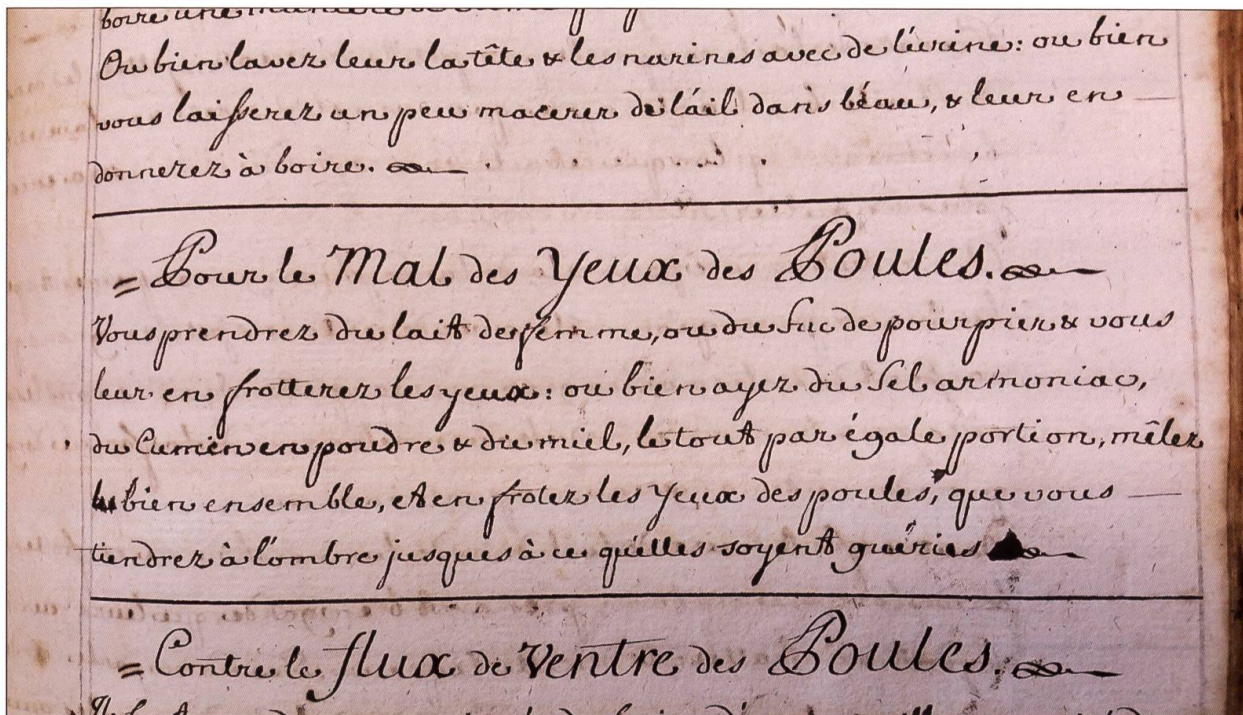 boire une maniere de
Ou bien lavez leur la tête & les narines avec de l'urine: ou bien
vous laisserez un peu macerer de l'ail dans l'eau, & leur en
donnerez à boire.
= Pour le Mal des Yeux des Poules.
Vous prendrez du lait de femme, ou du suc de pourpier & vous
leur en frotterez les yeux: ou bien ayez du sel armoniac,
du Cumin en poudre & du miel, le tout par égale portion, mêlez
bien ensemble, et en frotez les yeux des poules, que vous
tiendrez à l'ombre jusques à ce qu'elles soyent guéries
= Contre le flux de Ventre des Poules.